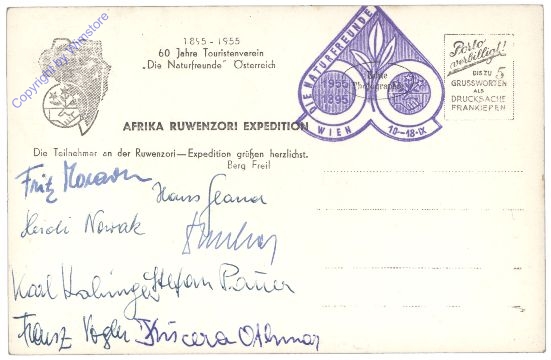 Copyright by Wimstore
1895-1955
60 Jahre Touristenverein
„Die Naturfreunde" Österreich
DIE NATURFREUNDE
1955
1895
WIEN
10-18·IX
Porto
verbilligt!
BIS ZU 5
GRUSSWORTEN
ALS
DRUCKSACHE
FRANKIEREN
AFRIKA RUWENZORI EXPEDITION
Die Teilnehmer an der Ruwenzori—Expedition grüßen herzlichst.
Berg Frei!
Fritz Moravec
Hans
Heidi Nowak
Karl Stefan Pauer
Franz Vogler Othmar